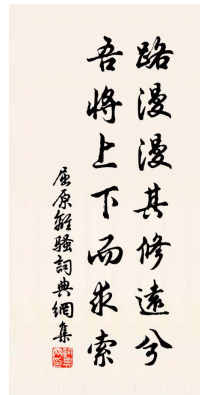 路漫漫其修遠兮
吾將上下而求索
屈原離騷詞典網集